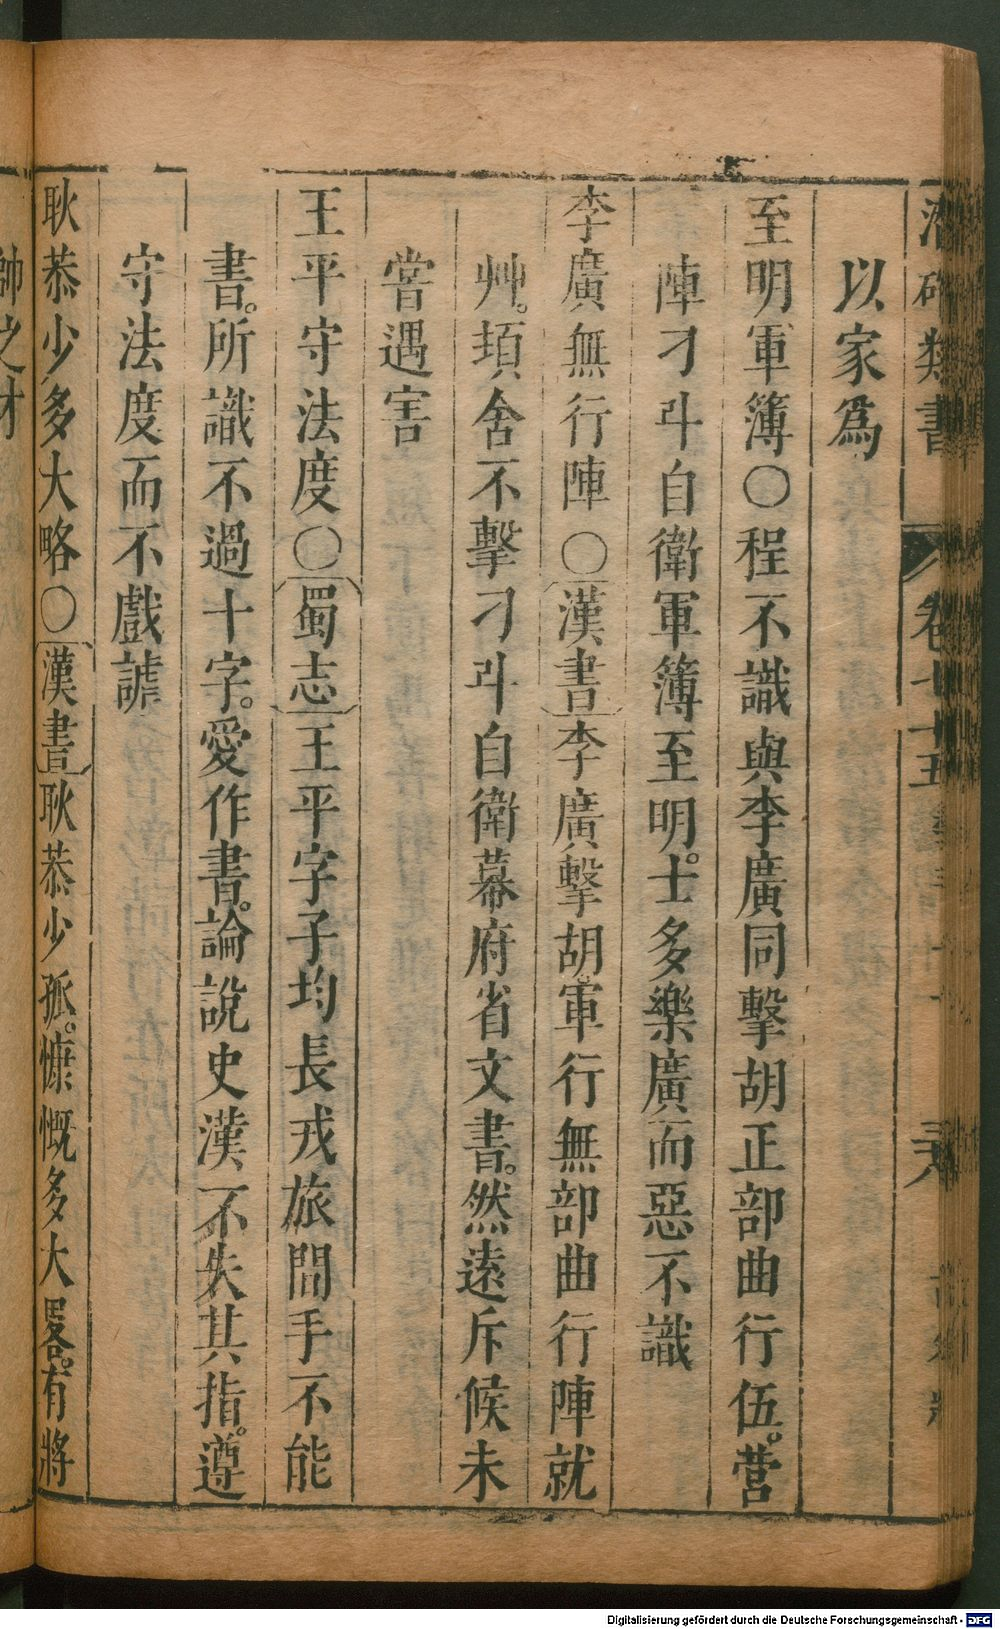 潛確類書 卷七十五
以家爲
至明軍簿○程不識與李廣同擊胡正部曲行伍。營
陣刁斗自衛軍簿至明。士多樂廣而惡不識
李廣無行陣○漢書李廣擊胡軍行無部曲行陣就
艸。頃舍不擊刁斗自衛幕府省文書。然遠斥候未
嘗遇害
王平守法度○蜀志王平字子均長戎旅間手不能
書。所識不過十字。愛作書。論說史漢不失其指。遵
守法度而不戲謔
耿恭少多大略○漢書耿恭少孤。慷慨多大畧。有將
帥之才
Digitalisierung gefördert durch die Deutsche Forschungsgemeinschaft - DFG